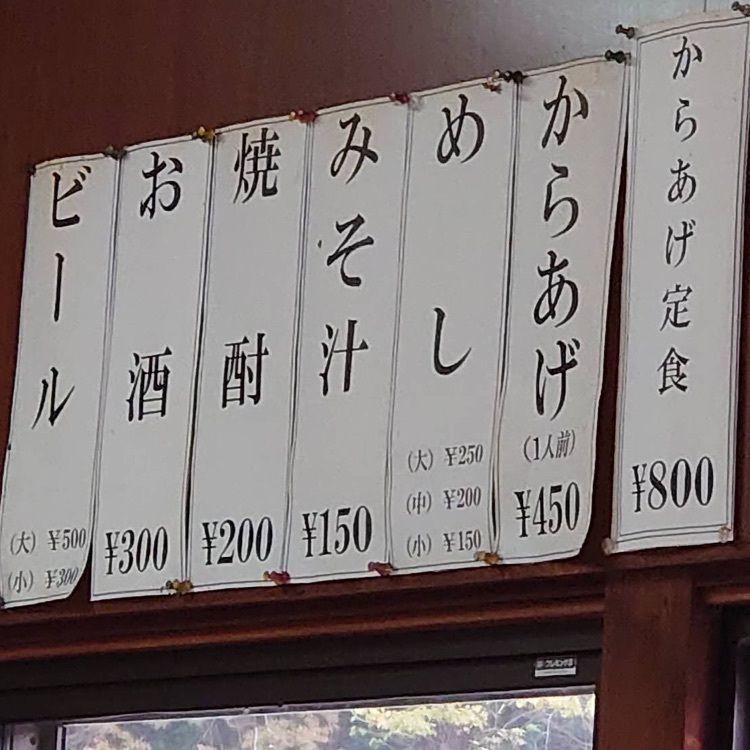 からあげ定食
¥800
からあげ
(1人前)
¥450
めし
(大) ¥250
(中) ¥200
(小) ¥150
みそ汁
¥150
焼酎
¥200
お酒
¥300
ビール
(大) ¥500
(小) ¥300